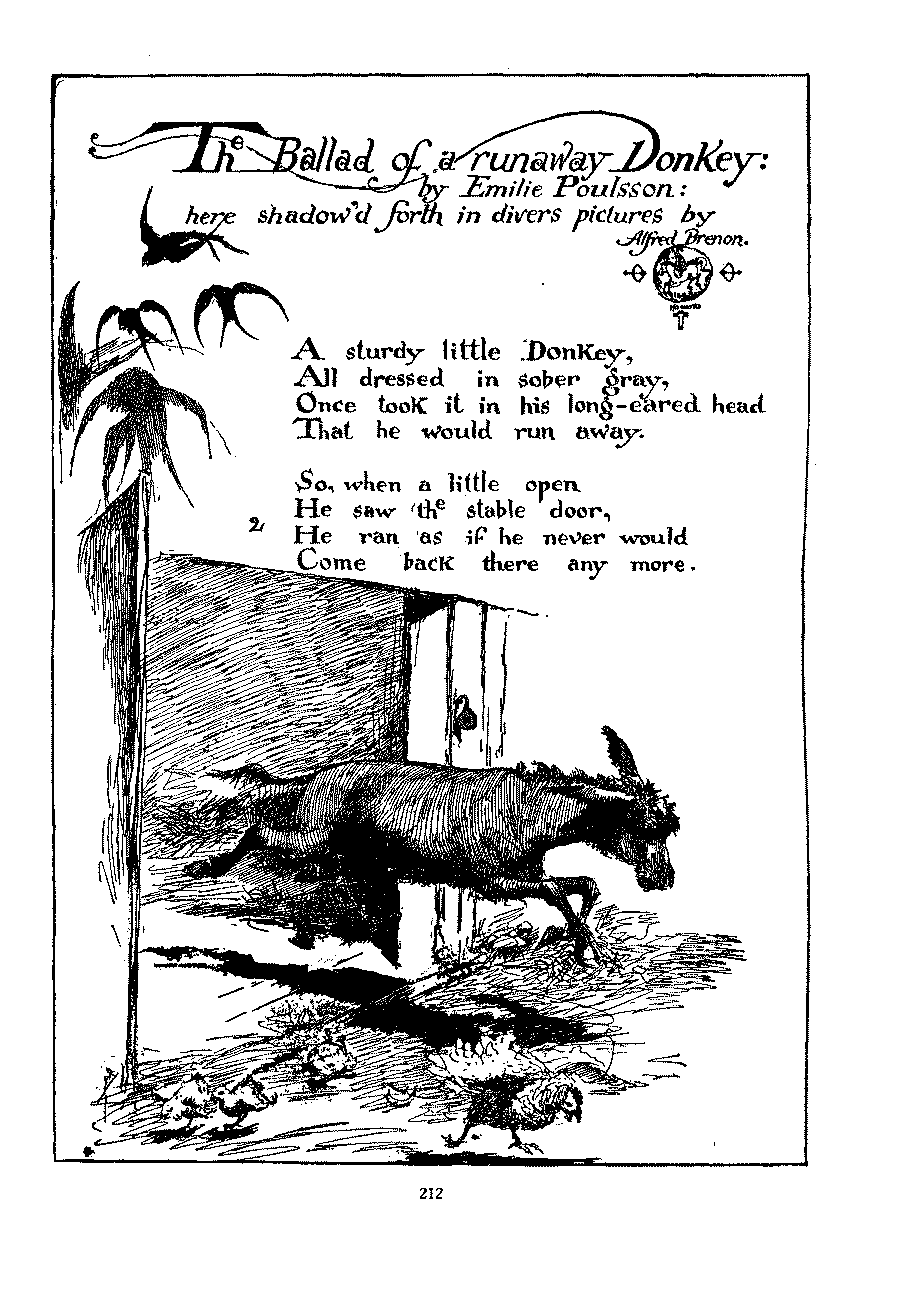 The Ballad of a runaway Donkey:
by Emilie Poulsson:
here shadow'd forth in divers pictures by
Alfred Brenon.
A sturdy little Donkey,
All dressed in sober gray,
Once took it in his long-eared head
That he would run away.
So, when a little open
He saw the stable door,
2 He ran as if he never would
Come back there any more.
212